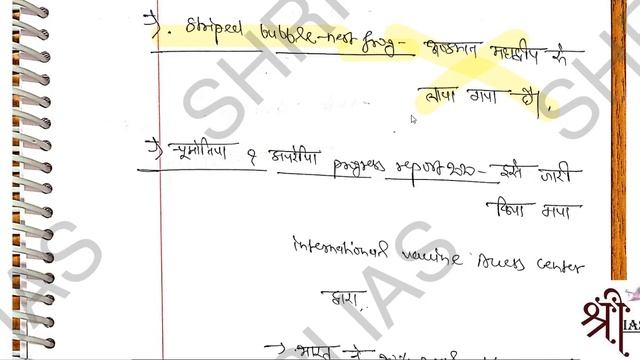 →). striped bubble-nest frog - अण्डमान महाद्वीप से
पाया गया है।
→). न्यूमोनिया & डायरिया progress report 2020 - इसे जारी
किया गया
international vaccine Access center
द्वारा,
→ भारत ने
श्री IAS
SHRI IAS